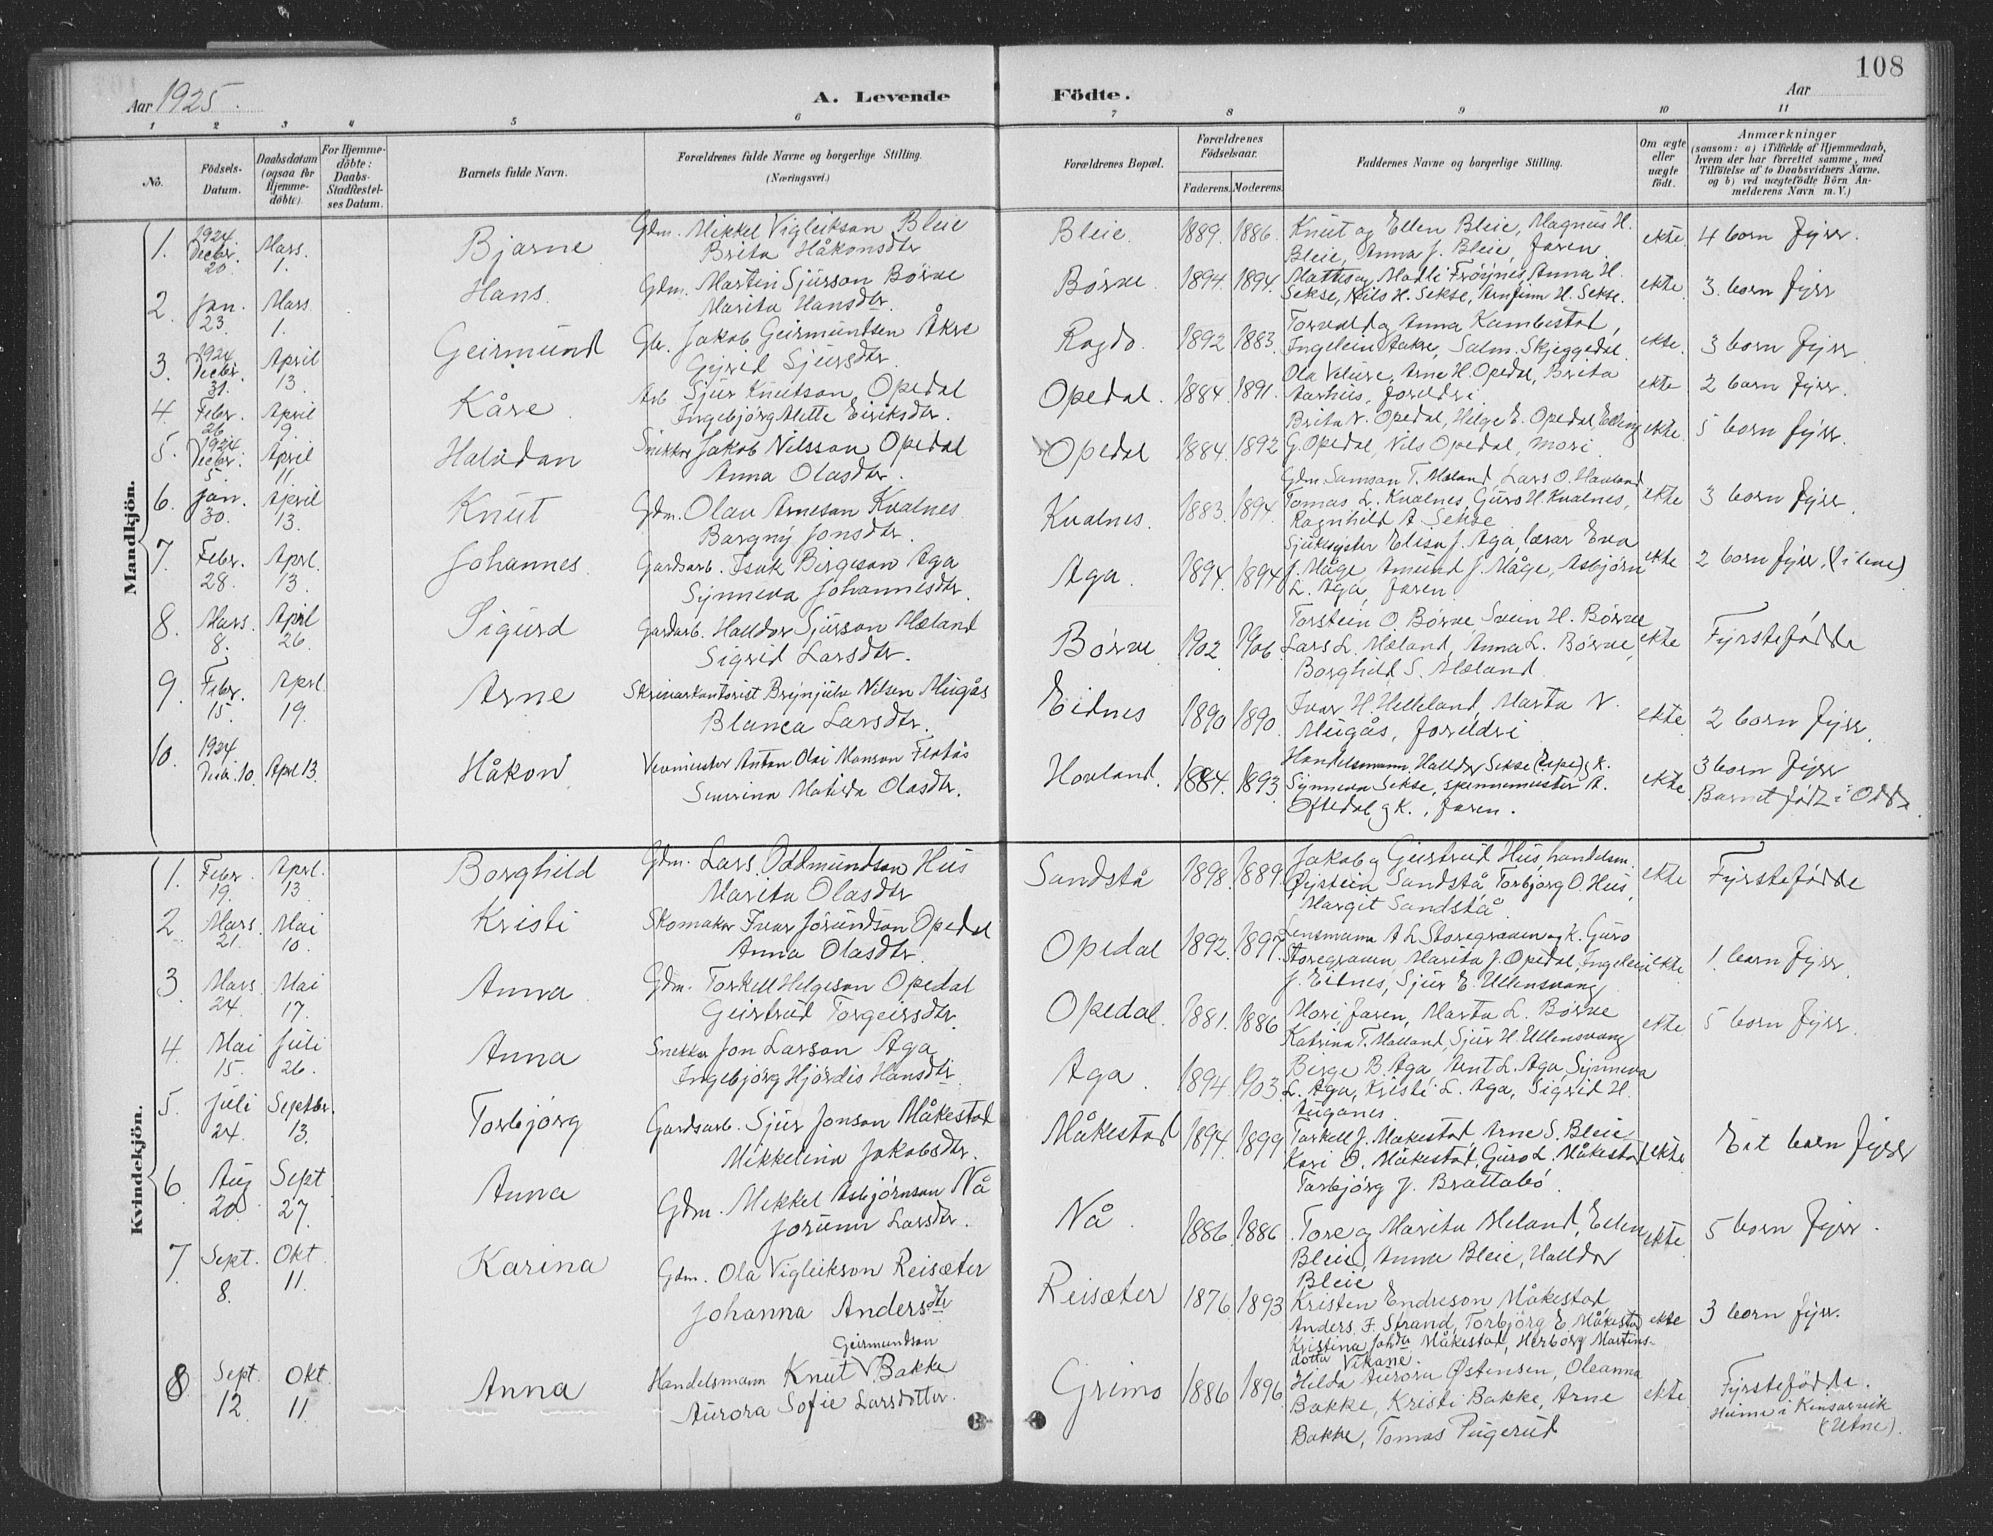 108
Aar 1925.
A. Levende Födte.
Aar
1 2 3 4 5 6 7 8 9 10 11
No.
Födsels-Datum.
Daabsdatum (ogsaa for Hjemme-döbte).
For Hjemme-döbte: Daabs-Stadfæstel-ses Datum.
Barnets fulde Navn.
Forældrenes fulde Navne og borgerlige Stilling. (Næringsvei.)
Forældrenes Bopæl.
Forældrenes Födselsaar.
Faderens. Moderens.
Faddernes Navne og borgerlige Stilling.
Om ægte eller uægte födt.
Anmærkninger
(saasom: a) i Tilfælde af Hjemmedaab,
hvem der har forrettet samme, med
Tilföielse af to Daabsvidners Navne,
og b) ved uægtefödte Börn An-
melderens Navn m. V.)
Mandkjön.
1. 1924 Decbr. 20. Mars. 1. Bjarne Gdm. Mikkel Vigleikson Bleie
Brita Håkonsdtr Bleie. 1889. 1886. Knut og Ellen Bleie, Magnus H.
Bleie, Anna J. Bleie, faren. ekte 4 born fyrr.
2. Jan. 23. Mars 1. Hans. Gdm. Martin Sjursson Børve
Marita Hansdtr. Børve. 1894. 1894. Mattis og Madli Frøynes, Anna H.
Sekse, Nils H. Sekse, Arnfinn H. Sekse. ekte 3. born fyrr
3. 1924 Decbr. 31. April 13. Geirmund Gbr. Jakob Geirmundsen Åkre
Gyrid Sjursdtr. Ragde. 1892 1883. Torvald og Anna Kambestad,
Ingeleiv Aakre, Salm. Skjeggedal. ekte. 3 born fyrr
4. Febr. 26 April 9 Kåre. Arb Sjur Knutson Opedal
Ingebjørg Mette Eiriksdtr. Opedal. 1884. 1891. Ola Velure, Arne H. Opedal, Brita
Aarhus, foreldri. ekte 2 born fyrr.
5. 1924 Decbr. 5. April 11. Halvdan Snikkar Jakob Nilsson Opedal
Anna Olasdtr. Opedal 1884. 1892 Brita N. Opedal, Helge E. Opedal, Elling
G. Opedal, Nils Opedal, mori. ekte. 5 born fyrr.
6. Jan. 30. April 13. Knut Gdm. Olav Arneson Kvalnes
Bargny Jonsdtr. Kvalnes. 1883. 1894. Gdm. Samson T. Mæland, Lars O. Hauland
Tomas L. Kvalnes, Guro H. Kvalnes,
Ragnhild A Sekse ekte 3 born fyrr
7. Febr. 28. Aprl. 13. Johannes. Gardsarb. Isak Birgeson Aga
Synneva Johannesdtr. Aga. 1894. 1894 Sjukesyster Elisa J. Aga lærar Eva
J. Måge, Amund J. Måge, Asbjørn
L. Aga, faren. ekte 2 born fyrr, (i live)
8. Mars. 8. April 26. Sigurd Gardarb. Halldor Sjursson Mæland
Sigrid Larsdtr. Børve 1902 1906. Torstein O. Børve Svein H. Børve
Lars L. Mæland, Anna L. Børve,
Borghild S. Mæland. ekte Fyrstefødde
9. Febr. 15. Aprl. 19. Arne Skrivarkontorist Brynjulv Nilsen Mugås
Blanca Larsdtr. Eidnes 1890 1890. Ivar H. Helleland, Marta N.
Mugås, foreldri ekte 2 born fyrr.
10. 1924 Decbr. 10. Aprl 13. Håkon Vevmeister Anton Olai Monson Flatås
Severina Matilda Olasdtr. Hovland. 1884. 1893. Handelsmann Halldor Sekse (Espe) og K.
Synneva Sekse, spinnemeister A.
Oftedal og K., faren. ekte 3 born fyrr
Barnet født i Odda.
Kvindekjön.
1. Febr. 19. Aprl. 13. Borghild Gdm. Lars Oddmundson Hus
Marita Olasdtr Sandstå 1898. 1889 Jakob og Geirtrud Hus handelsm.
Øystein Sandstå Torbjørg O. Hus,
Margit Sandstå. ekte Fyrstefødde
2. Mars. 21. Mai 10. Kristi Skomakar Ivar Jørundson Opedal
Anna Olasdtr. Opedal 1892. 1897 Lensmann A L Storegraven og K. Guro
Storegraven Marita J. Opedal, Ingeleiv
J. Eitnes, Sjur E. Ullensvang ekte. 1. born fyrr.
3. Mars 24. Mai 17. Anna Gdm. Torkell Helgeson Opedal
Geirtrud Torgeirsdtr. Opedal. 1881. 1886 Mori faren, Marta L. Børve
Katrina T. Mælland, Sjur H. Ullensvang ekte 5 born fyrr.
4. Mai 15. Juli 26. Anna Snikkar Jon Larson Aga
Ingebjørg Hjørdis Hansdtr. Aga. 1894 1903. Birge B. Aga Arnt L. Aga Synneva
L. Aga, Kristi L. Aga, Sigrid H.
Auganes.
5. Juli 24. Septbr. 13. Torbjørg Gardsarb. Sjur Jonson Måkestad
Mikkelina Jakobsdtr. Måkestad 1894. 1899 Torkell J. Måkestad Arne S. Bleie
Kari O. Måkestad, Guro L. Måkestad
Torbjørg J. Brattabø. ekte. Eit born fyrr
6. Aug 20. Sept 27. Anna Gdm. Mikkel Asbjørnson Nå
Jorunn Larsdtr. Nå. 1886. 1886. Tore og Marita Mæland, Ellen
Bleie, Anna Bleie, Halldor
Bleie ekte. 5 born fyrr.
7. Sept. 8. Okt. 11. Karina Gdm. Ola Vigleikson Reisæter
Johanna Andersdtr Reisæter 1876 1893 Kristen Endreson Måkestad
Anders F. Strand, Torbjørg E. Måkestad
Kristina Johda Måkestad, Herborg Martins-
dotter Vikane. ekte 3 born fyrr.
8 Sept. 12. Okt. 11. Anna Handelsmann Knut Geirmundson V Bakke
Aurora Sofie Larsdotter. Grimo 1886 1896. Hilda Aurora Østensen, Oleanna
Bakke, Kristi Bakke, Arne
Bakke, Tomas Pugerud ekte. Fyrstefødde.
Heime i Kinsarvik
(Utne).